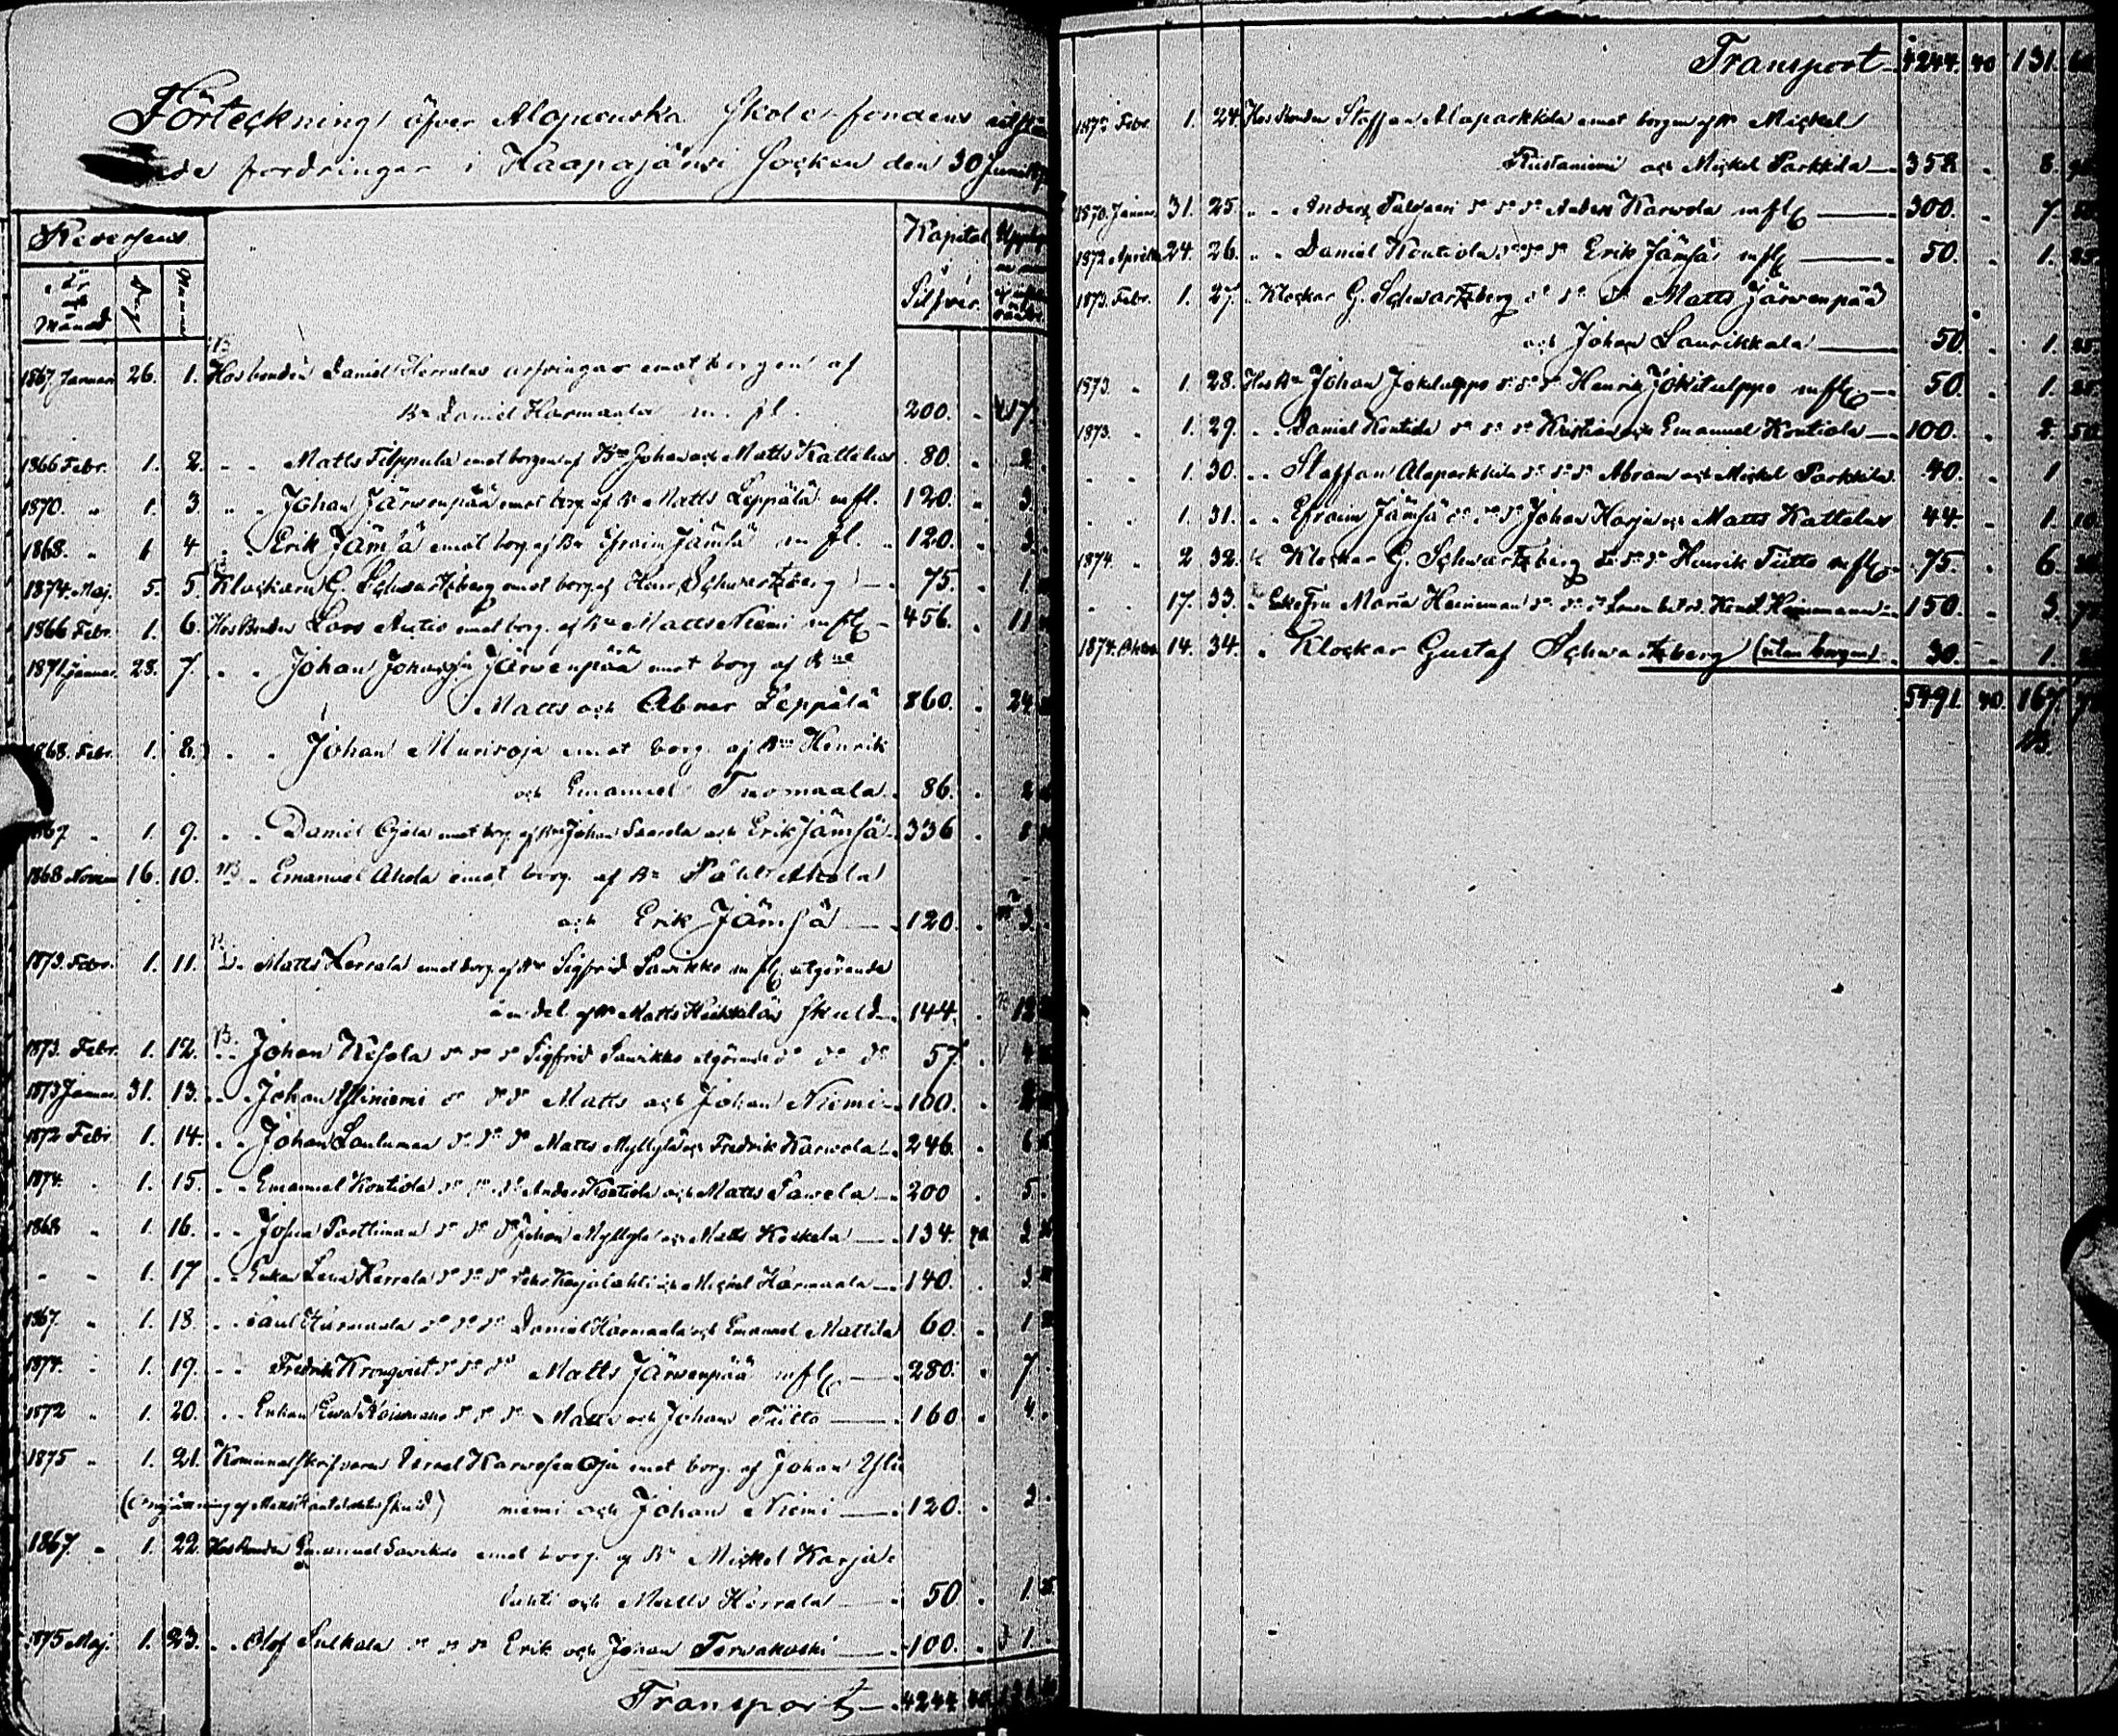 Förteckning öfver Alopæuska skolefondens utstå
ende fordringar i Haapajärwi Socken den 30 Junii
Reversens
Kapital
år och Månad
Dag
Silfver.
1867 Januari 26. 1. Hos bonden Daniel Herralas arfvingar emot borgen af
Bn Daniel Harmaala m. fl. 200. 17
1866 Febr. 1. 2. " " Matts Tilppula emot borgen af Bne Johan och Matts Kattelus 80. 2
1870 " 1. 3. " " Johan Järwenpää emot borg. af Bn Matts Leppälä mfl. 120. 3.
1868. " 1. 4. " " Erik Jämsä emot borg. af Bn Efraim Jämsä m. fl. 120. 3.
1874. Maj. 5. 5. Klockaren G. Schwartzberg emot borg. af Henr. Schwartzberg 75. 1
1866 Febr. 1. 6. Hos Bonden Lars Autio emot borg. af Bn Matts Niemi mfl 456. 11
1871 Januar. 28. 7. " " Johan Johansson Järwenpää emot borg af Bne
Matts och Abner Leppälä 860. 24
1868. Febr. 1. 8. " " Johan Muurioja emot borg. af Bne Henrik
och Emanuel Tuomaala 86. 2
1867 " 1. 9. " " Daniel Ojala emot borg. af Bne Johan Saarela och Erik Jämsä 336 8
1868 Novem 16. 10. NB " Emanuel Ahola emot borg. af Bn Påhl Ahola
och Erik Jämsä 120. 3.
1873. Febr. 1. 11. " Matts Lerrala emot borg. af Bn Sigfrid Sawikko mfl utgörande
en del af Bn Matts Heikkiläs skuld 144. 12
1873. Febr. 1. 12. " Johan Kesola do do do Sigfrid Sawikko utgörande do do do 57. 4
1873 Januar. 31. 13. " " Johan Yliniemi do do do Matts och Johan Niemi 100. 2
1872 Febr. 1. 14. " " Johan Louluman do do do Matts Myllylä och Fredrik Karwola 246. 6
1874. " 1. 15. " " Emanuel Kontiola do do do Anders Kontiola och Matts Pawela 200 5.
1868 " 1. 16. " " Johan Porttiman do do do Johan Myllylä och Matts Koskela 134. 40 3
" " 1. 17 " " Enkan Lena Herrala do do do Karjalahti och Mickel Harmaala 140. 3
1867. " 1. 18. " " Paul Harmaala do do do Daniel Harmaala och Emanuel Mattila 60. 1
1874. " 1. 19. " " Fredrik Kronqvist do do do Matts Järwenpää mfl 280. 7
1872 " 1. 20. " " Enkan Ewa do do do Matts och Johan Tiitto 160 4.
1875 " 1. 21. Kommunalskrifvaren Israel Karwosenoja emot borg. af Johan Yli
niemi och Johan Niemi 120. 3
1867. " 1. 22. Hos Bonden Emanuel Sawikko emot borg. af Bn Mickel Karja
lahti och Matts Herrala 50 1. 25
1875 Maj. 1. 23. " " Olof Sulkala do do do Erik och Johan Terwakoski 100. 1
Transport 4244 40 131
Transport 4244. 40 131.
Febr. 1. 24. Hos Bonden Staffan Alaparkkila emot borgen af Bn Mickel
Ristaniemi och Mickel Parkkila 358 8.
1870. Januar. 31. 25. " " Anders do do do Anders Karwola mfl 300. 7. 50
1872 Aprill 24. 26. " " Daniel Kontiola do do do Erik Jämsä mfl 50. 1. 25
1873. Febr. 1. 27. " Klockar G. Schwartzberg do do do Matts Järwenpää
och Johan Laurikkala 50. 1. 25.
1873 " 1. 28. Hos Bn Johan Jokitulppo do do do Henrik Jokitulppo mfl 50. 1. 25.
1873. " 1. 29. " " Daniel Kontiola do do do Kristian och Emanuel Kontiola 100. 2. 50
" " 1. 30. " " Staffan Alaparkkila do do do Abram och Mickel Parkkila 40. 1
" " 1. 31. " " Efraim Jämsä do do do Johan Harju och Matts Kattelus 44. 1. 10
1874. " 2 32. " Klockar G. Schwartzberg do do do Henrik Tiitto mfl 75. 6.
" " 17. 33. " Enke Fru Maria Heineman do do do Heinemann 150. 3. 75
1874. Oktob. 14. 34. " Klockar Gustaf Schwartzberg (utan borgen) 30. 1.
5491. 40. 167.
NB.